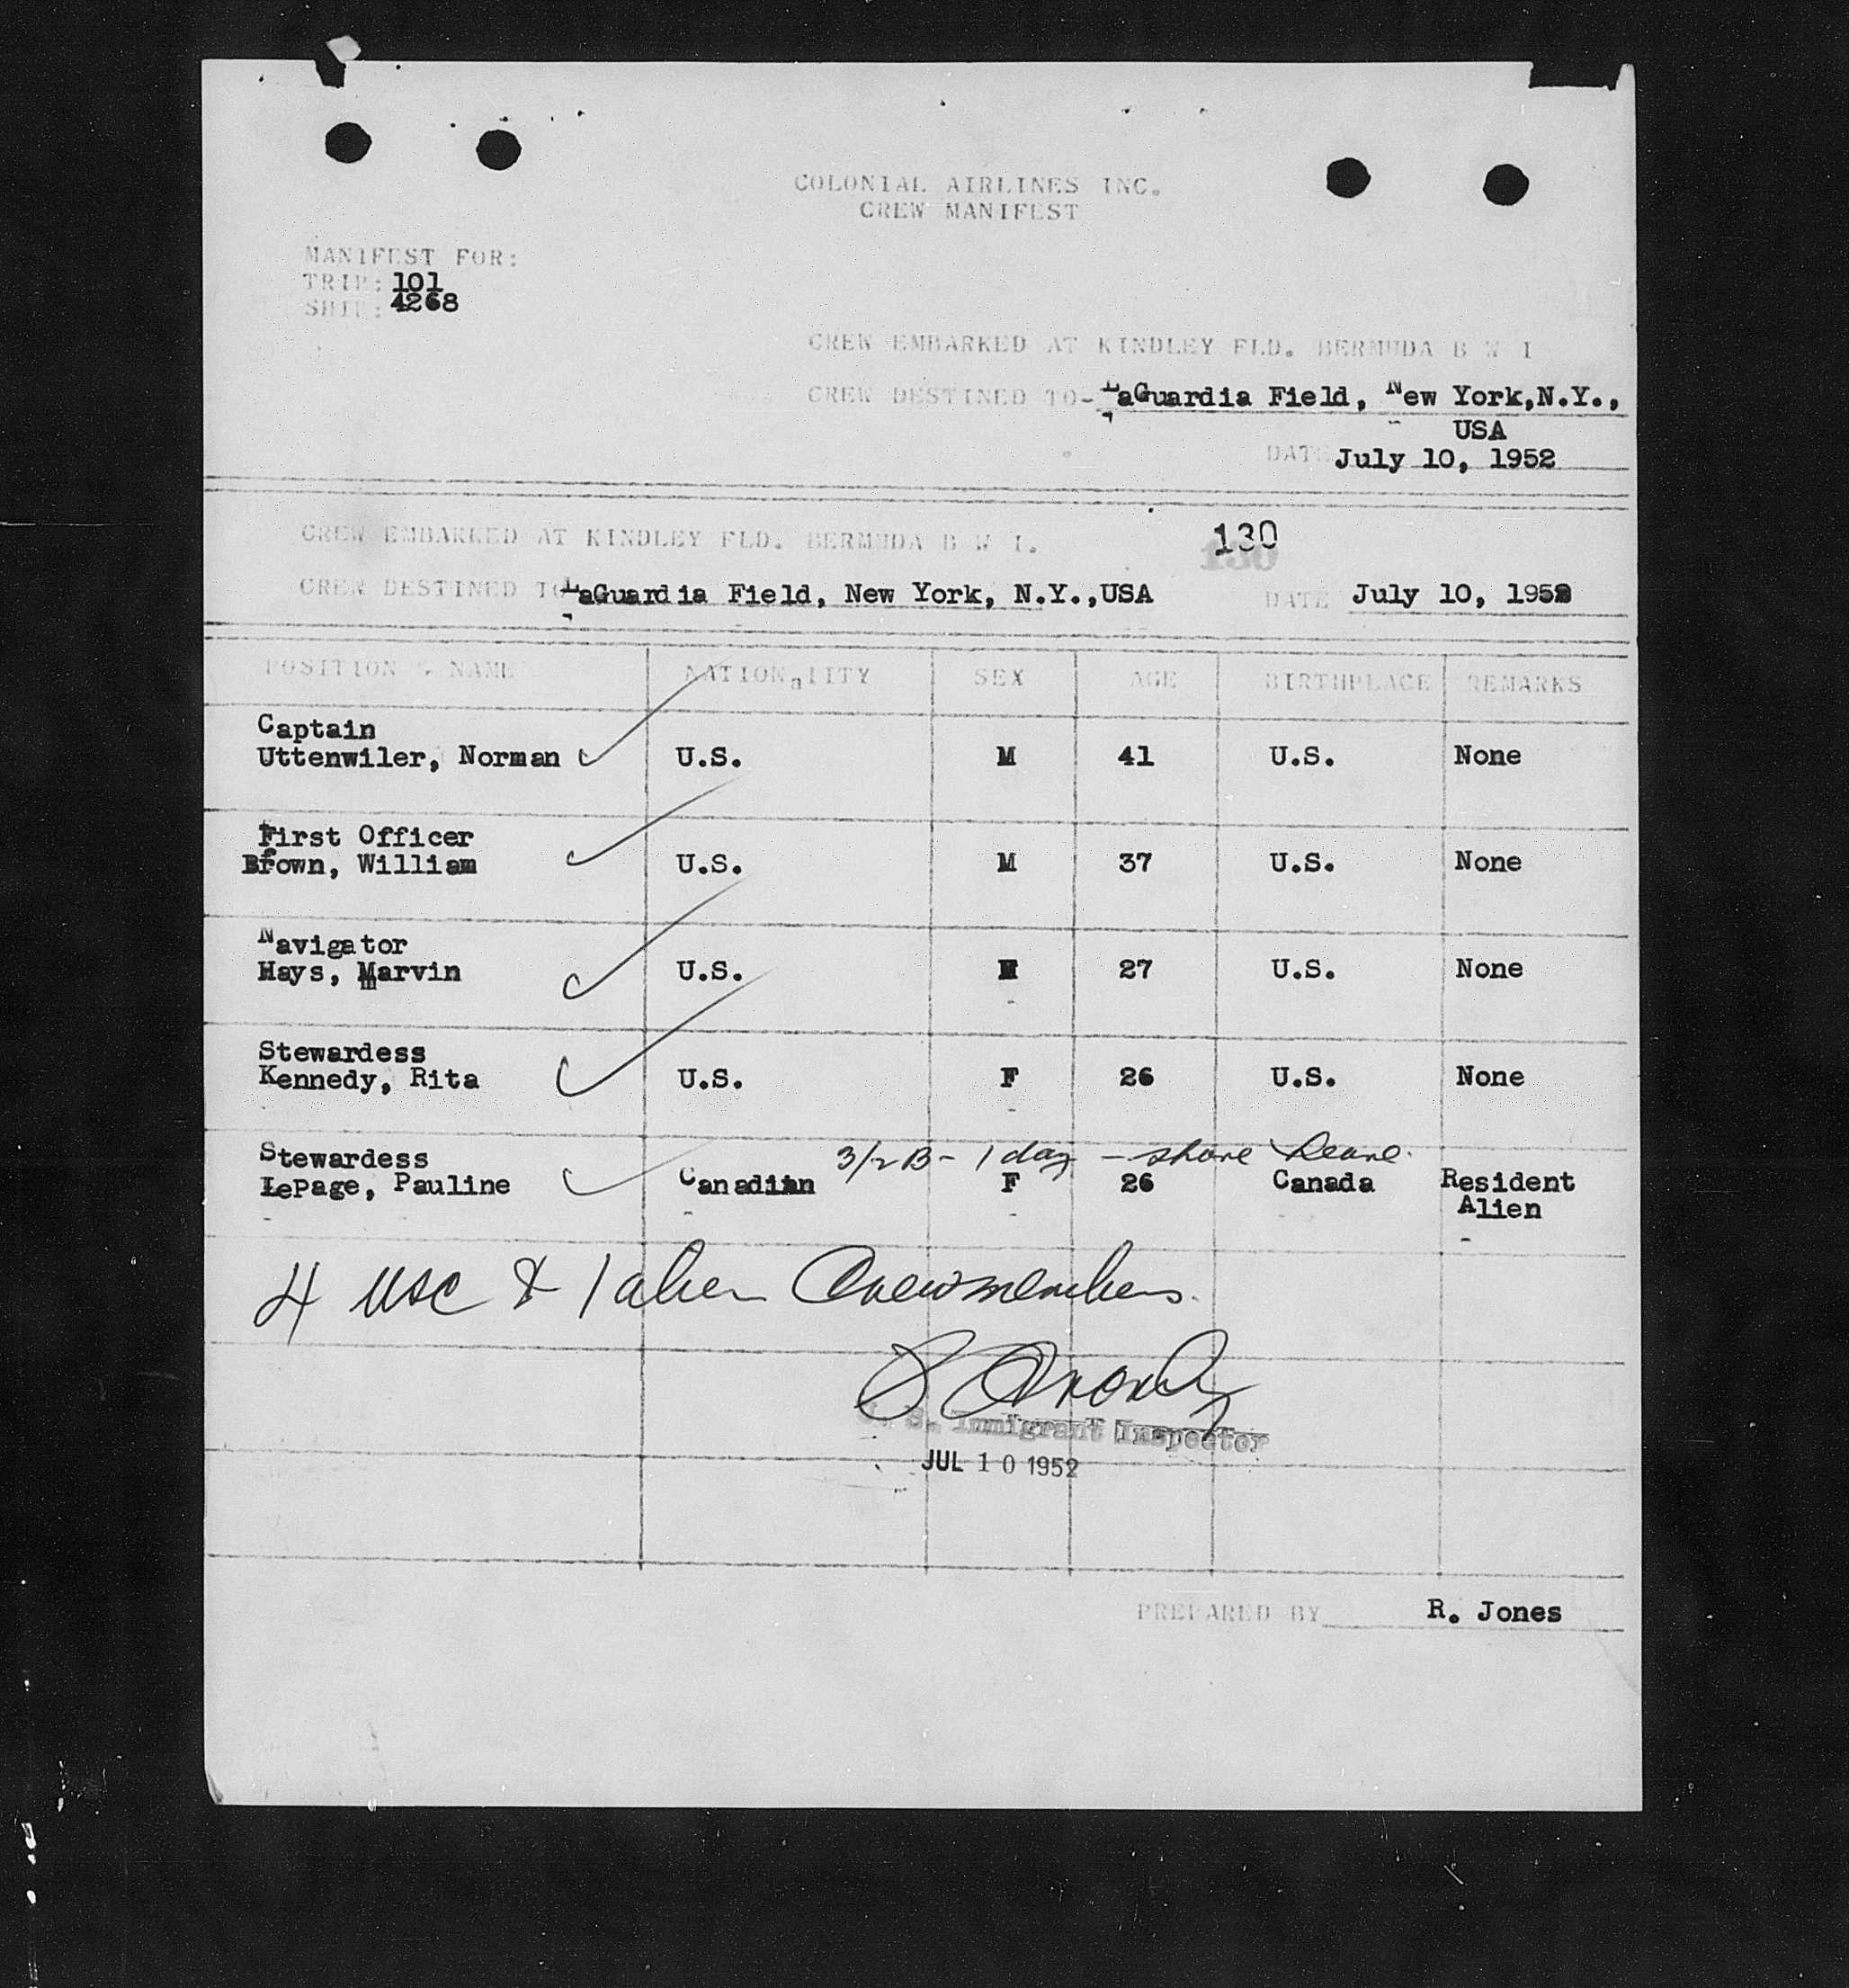 COLONIAL AIRLINES INC.
CREW MANIFEST
MANIFEST FOR:
TRIP: 101
SHIP: 4268
CREW EMBARKED AT KINDLEY FLD. BERMUDA B W I
CREW DESTINED TO- LaGuardia Field, New York,N.Y.,
USA
DATE July 10, 1952
CREW EMBARKED AT KINDLEY FLD. BERMUDA B W I. 130
CREW DESTINED TO LaGuardia Field, New York, N.Y.,USA DATE July 10, 1952
POSITION & NAME NATIONaLITY SEX AGE BIRTHPLACE REMARKS
Captain
Uttenwiler, Norman U.S. M 41 U.S. None
First Officer
Brown, William U.S. M 37 U.S. None
Navigator
Hays, Marvin U.S. M 27 U.S. None
Stewardess
Kennedy, Rita U.S. F 26 U.S. None
3/2 B - 1 day - shore leave.
Stewardess
LePage, Pauline Canadian F 26 Canada Resident
Alien
4 USC & 1 alien Crewmembers.
U. S. Immigrant Inspector
JUL 10 1952
PREPARED BY R. Jones